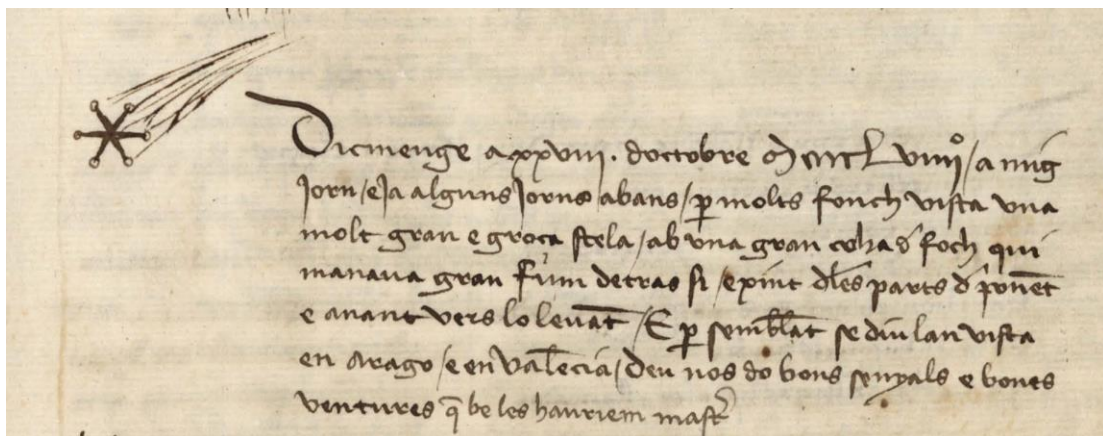 Dicmenge a xxviii. doctobre Mcccclviiiiº / a mig
jorn / e ja alguns jorns abans / p molts fonch vista vna
molt gran e groca stela / ab vna gran coha d foch qui
manaua gran fum detras si / exint dles parts d ponēt
e anant vers lo leuāt / E p semblāt se diu lan vista
en arago / e en valēcia / deu nos do bons senyals e bones
ventures q̄ be les hauriem mast